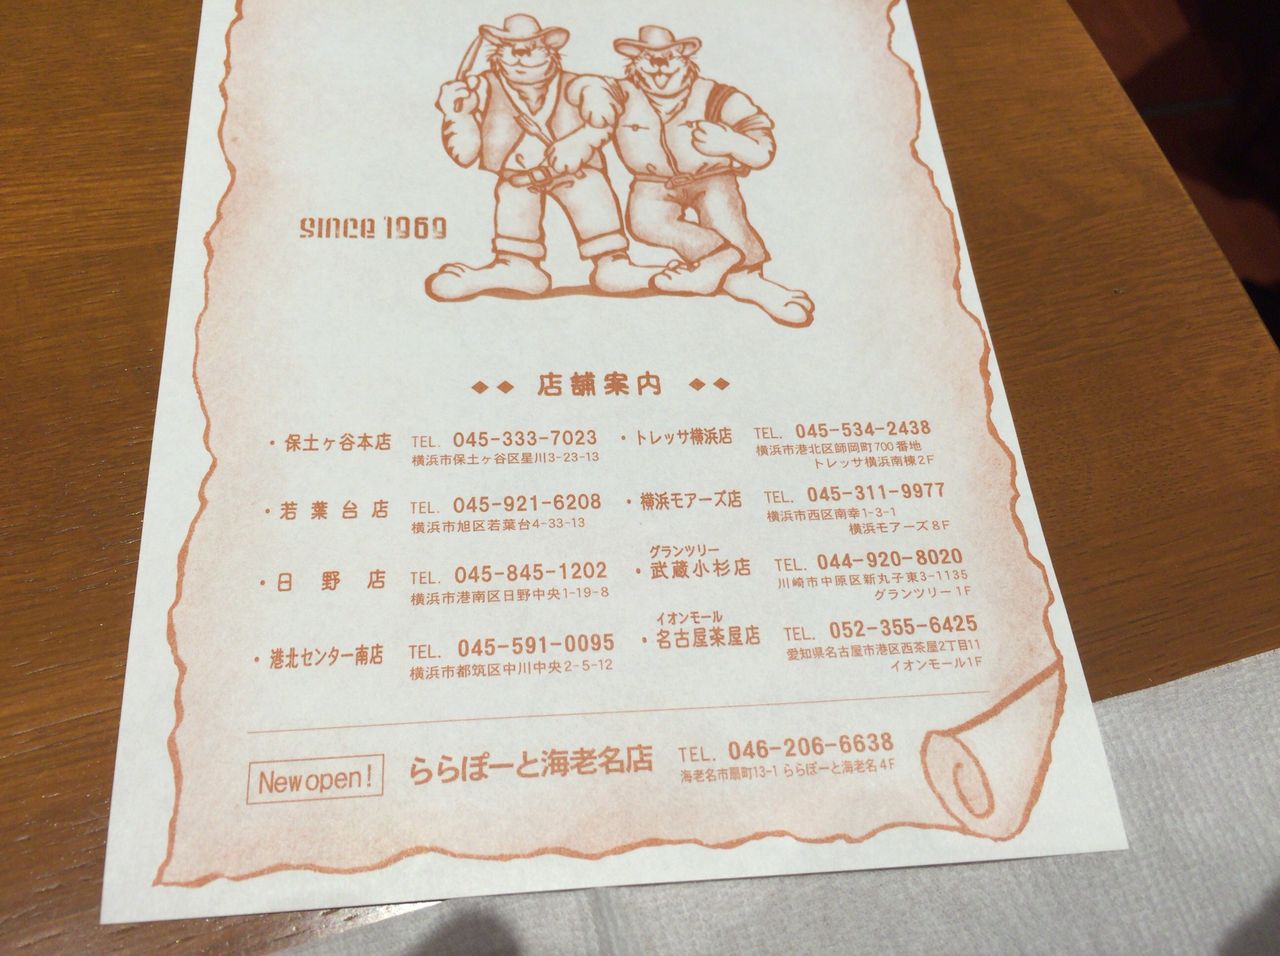 since 1969
◆◆ 店舗案内 ◆◆
・保土ヶ谷本店 TEL. 045-333-7023
横浜市保土ヶ谷区星川3-23-13
・若葉台店 TEL. 045-921-6208
横浜市旭区若葉台4-33-13
・日野店 TEL. 045-845-1202
横浜市港南区日野中央1-19-8
・港北センター南店 TEL. 045-591-0095
横浜市都筑区中川中央2-5-12
・トレッサ横浜店 TEL. 045-534-2438
横浜市港北区師岡町700番地
トレッサ横浜南棟2F
・横浜モアーズ店 TEL. 045-311-9977
横浜市西区南幸1-3-1
横浜モアーズ8F
グランツリー
・武蔵小杉店 TEL. 044-920-8020
川崎市中原区新丸子東3-1135
グランツリー1F
イオンモール
・名古屋茶屋店 TEL. 052-355-6425
愛知県名古屋市港区西茶屋2丁目11
イオンモール1F
New open! ららぽーと海老名店 TEL. 046-206-6638
海老名市扇町13-1 ららぽーと海老名4F